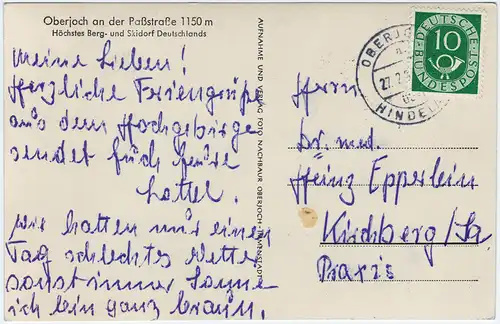 Oberjoch an der Paßstraße 1150 m
Höchstes Berg- und Skidorf Deutschlands
Meine Lieben!
Herzliche Feriengrüße
aus dem Hochgebirge
sendet Euch
Lottel.
Wir hatten nur einen
Tag schlechtes Wetter
sonst immer Sonne
ich bin ganz braun.
AUFNAHME UND VERLAG FOTO NACHBAUR OBERJOCH
OBERJO
27.2.5
HINDEL
DEUTSCHE
BUNDESPOST
10
Herrn
Dr. med.
Heinz Epperlein
Kirchberg/Sa.
Praxis